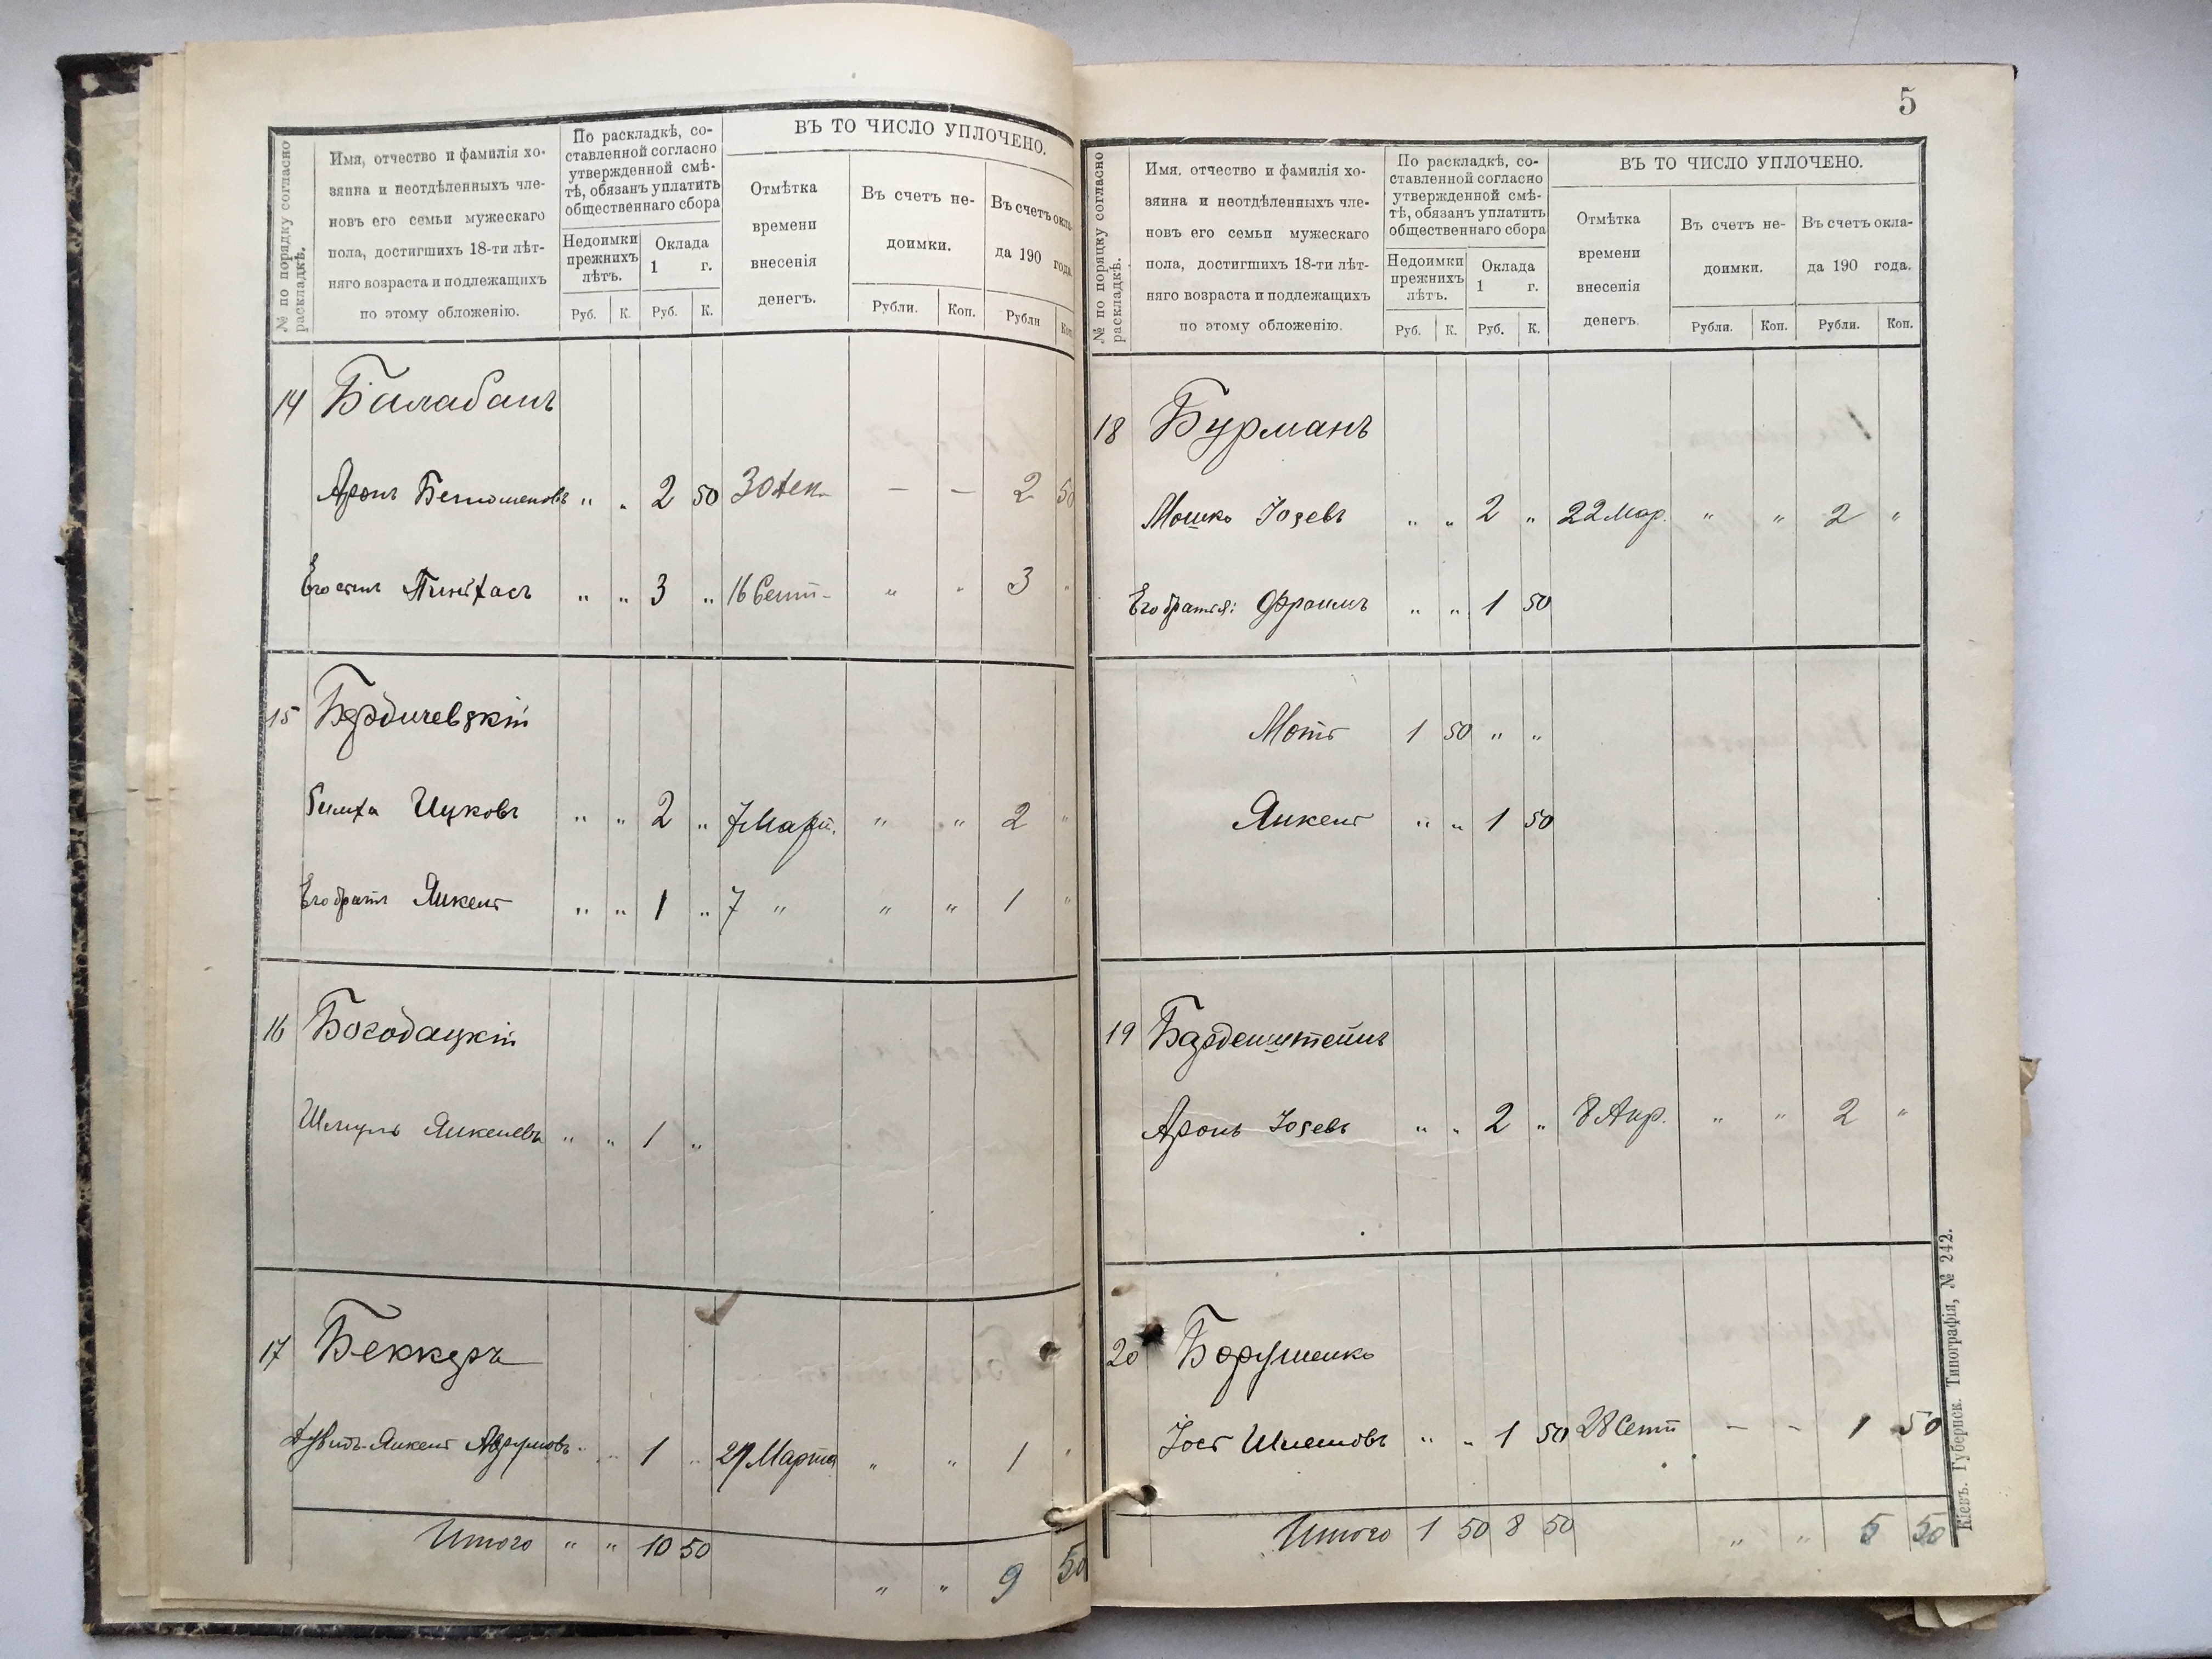 № по порядку согласно раскладкѣ.
Имя, отчество и фамилія хо-
зяина и неотдѣленныхъ чле-
новъ его семьи мужескаго
пола, достигшихъ 18-ти лѣт-
няго возраста и подлежащихъ
по этому обложенію.
По раскладкѣ, со-
ставленной согласно
утвержденной смѣ-
тѣ, обязанъ уплатить
общественнаго сбора
Недоимки
прежнихъ
лѣтъ.
Оклада
1 г.
Руб. К. Руб. К.
ВЪ ТО ЧИСЛО УПЛОЧЕНО.
Отмѣтка
времени
внесенія
денегъ.
Въ счетъ не-
доимки.
Рубли. Коп.
Въ счетъ окла-
да 190 года.
Рубли Коп.
14 Балабанъ
Аронъ " " 2 50 30 Дек. — — 2 50
Его сынъ Пинхасъ " " 3 " 16 Сент. " " 3 "
15 Бердичевскій
Симха Ицковъ " " 2 " 7 Март. " " 2 "
Его братъ Янкель " " 1 " 7 " " " 1 "
16 Богодацкій
Шмуль Янкелевъ " " 1 "
17 Беккеръ
Дувидъ-Янкель Аврумовъ " " 1 " 29 Марта " " 1 "
Итого " " 10 50 " " 9 50
5
№ по порядку согласно раскладкѣ.
Имя, отчество и фамилія хо-
зяина и неотдѣленныхъ чле-
новъ его семьи мужескаго
пола, достигшихъ 18-ти лѣт-
няго возраста и подлежащихъ
по этому обложенію.
По раскладкѣ, со-
ставленной согласно
утвержденной смѣ-
тѣ, обязанъ уплатить
общественнаго сбора
Недоимки
прежнихъ
лѣтъ.
Оклада
1 г.
Руб. К. Руб. К.
ВЪ ТО ЧИСЛО УПЛОЧЕНО.
Отмѣтка
времени
внесенія
денегъ.
Въ счетъ не-
доимки.
Рубли. Коп.
Въ счетъ окла-
да 190 года.
Рубли. Коп.
18 Бурманъ
Мошко Іозевъ " " 2 " 22 Мар. " " 2 "
Его братья: Фроимъ " " 1 50
Мотъ 1 50 " "
Янкель " " 1 50
19 Барденштейнъ
Аронъ Іозевъ " " 2 " 8 Апр. " " 2 "
20 Борушенко
Іось Шлемовъ " " 1 50 28 Сент — — 1 50
Итого 1 50 8 50 " " 5 50
Кіевъ. Губернск. Типографія, № 242.